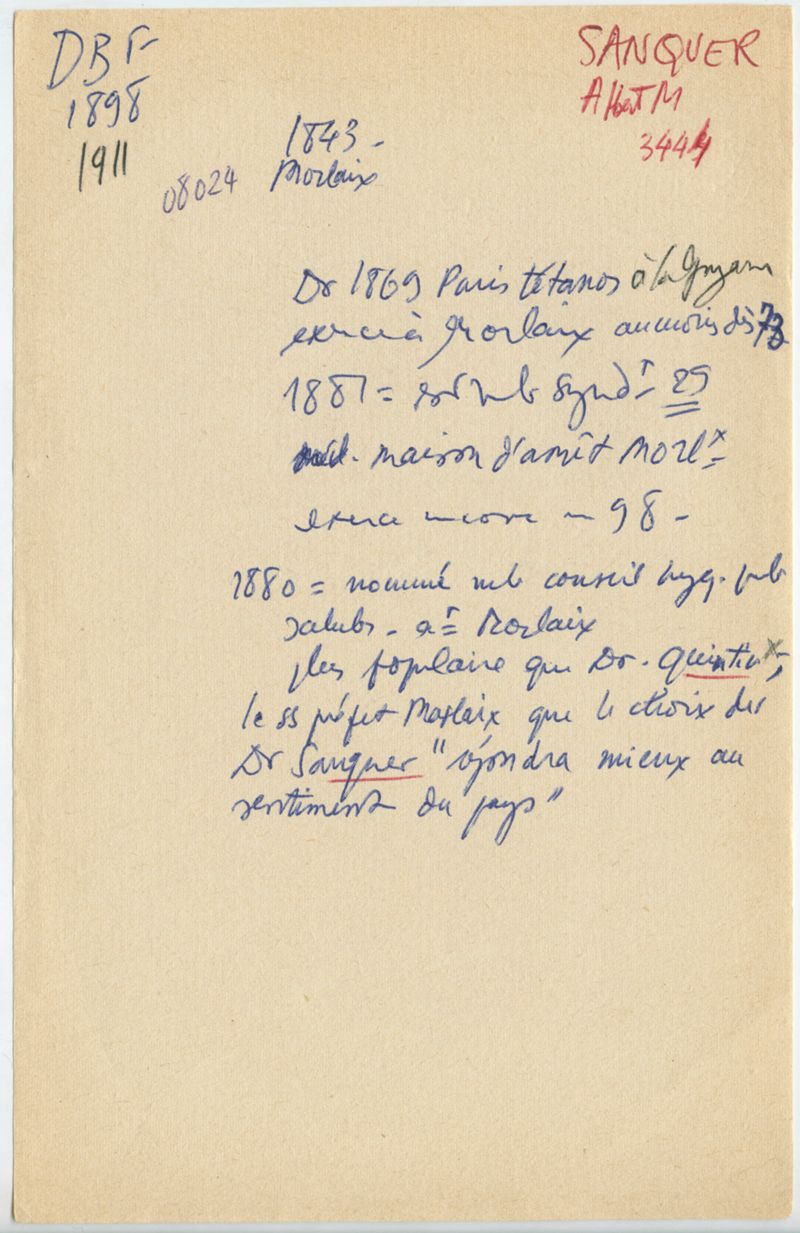 DBF
1898
1911
SANQUER
Albert M
3444
08024
1843 -
Morlaix
Dr 1869 Paris Tétanos à la Guyane
exerce à Morlaix au moins dès 73
1881 = est mb Synd^t 29
méd. maison d'arrêt Morl^x
exerce encore en 98 -
1880 = nommé mb conseil hyg. pub
salub. a^r Morlaix
plus populaire que Dr. Quintin,
le ss préfet Morlaix que le choix du
Dr Sanquer "répondra mieux au
sentiment du pays"